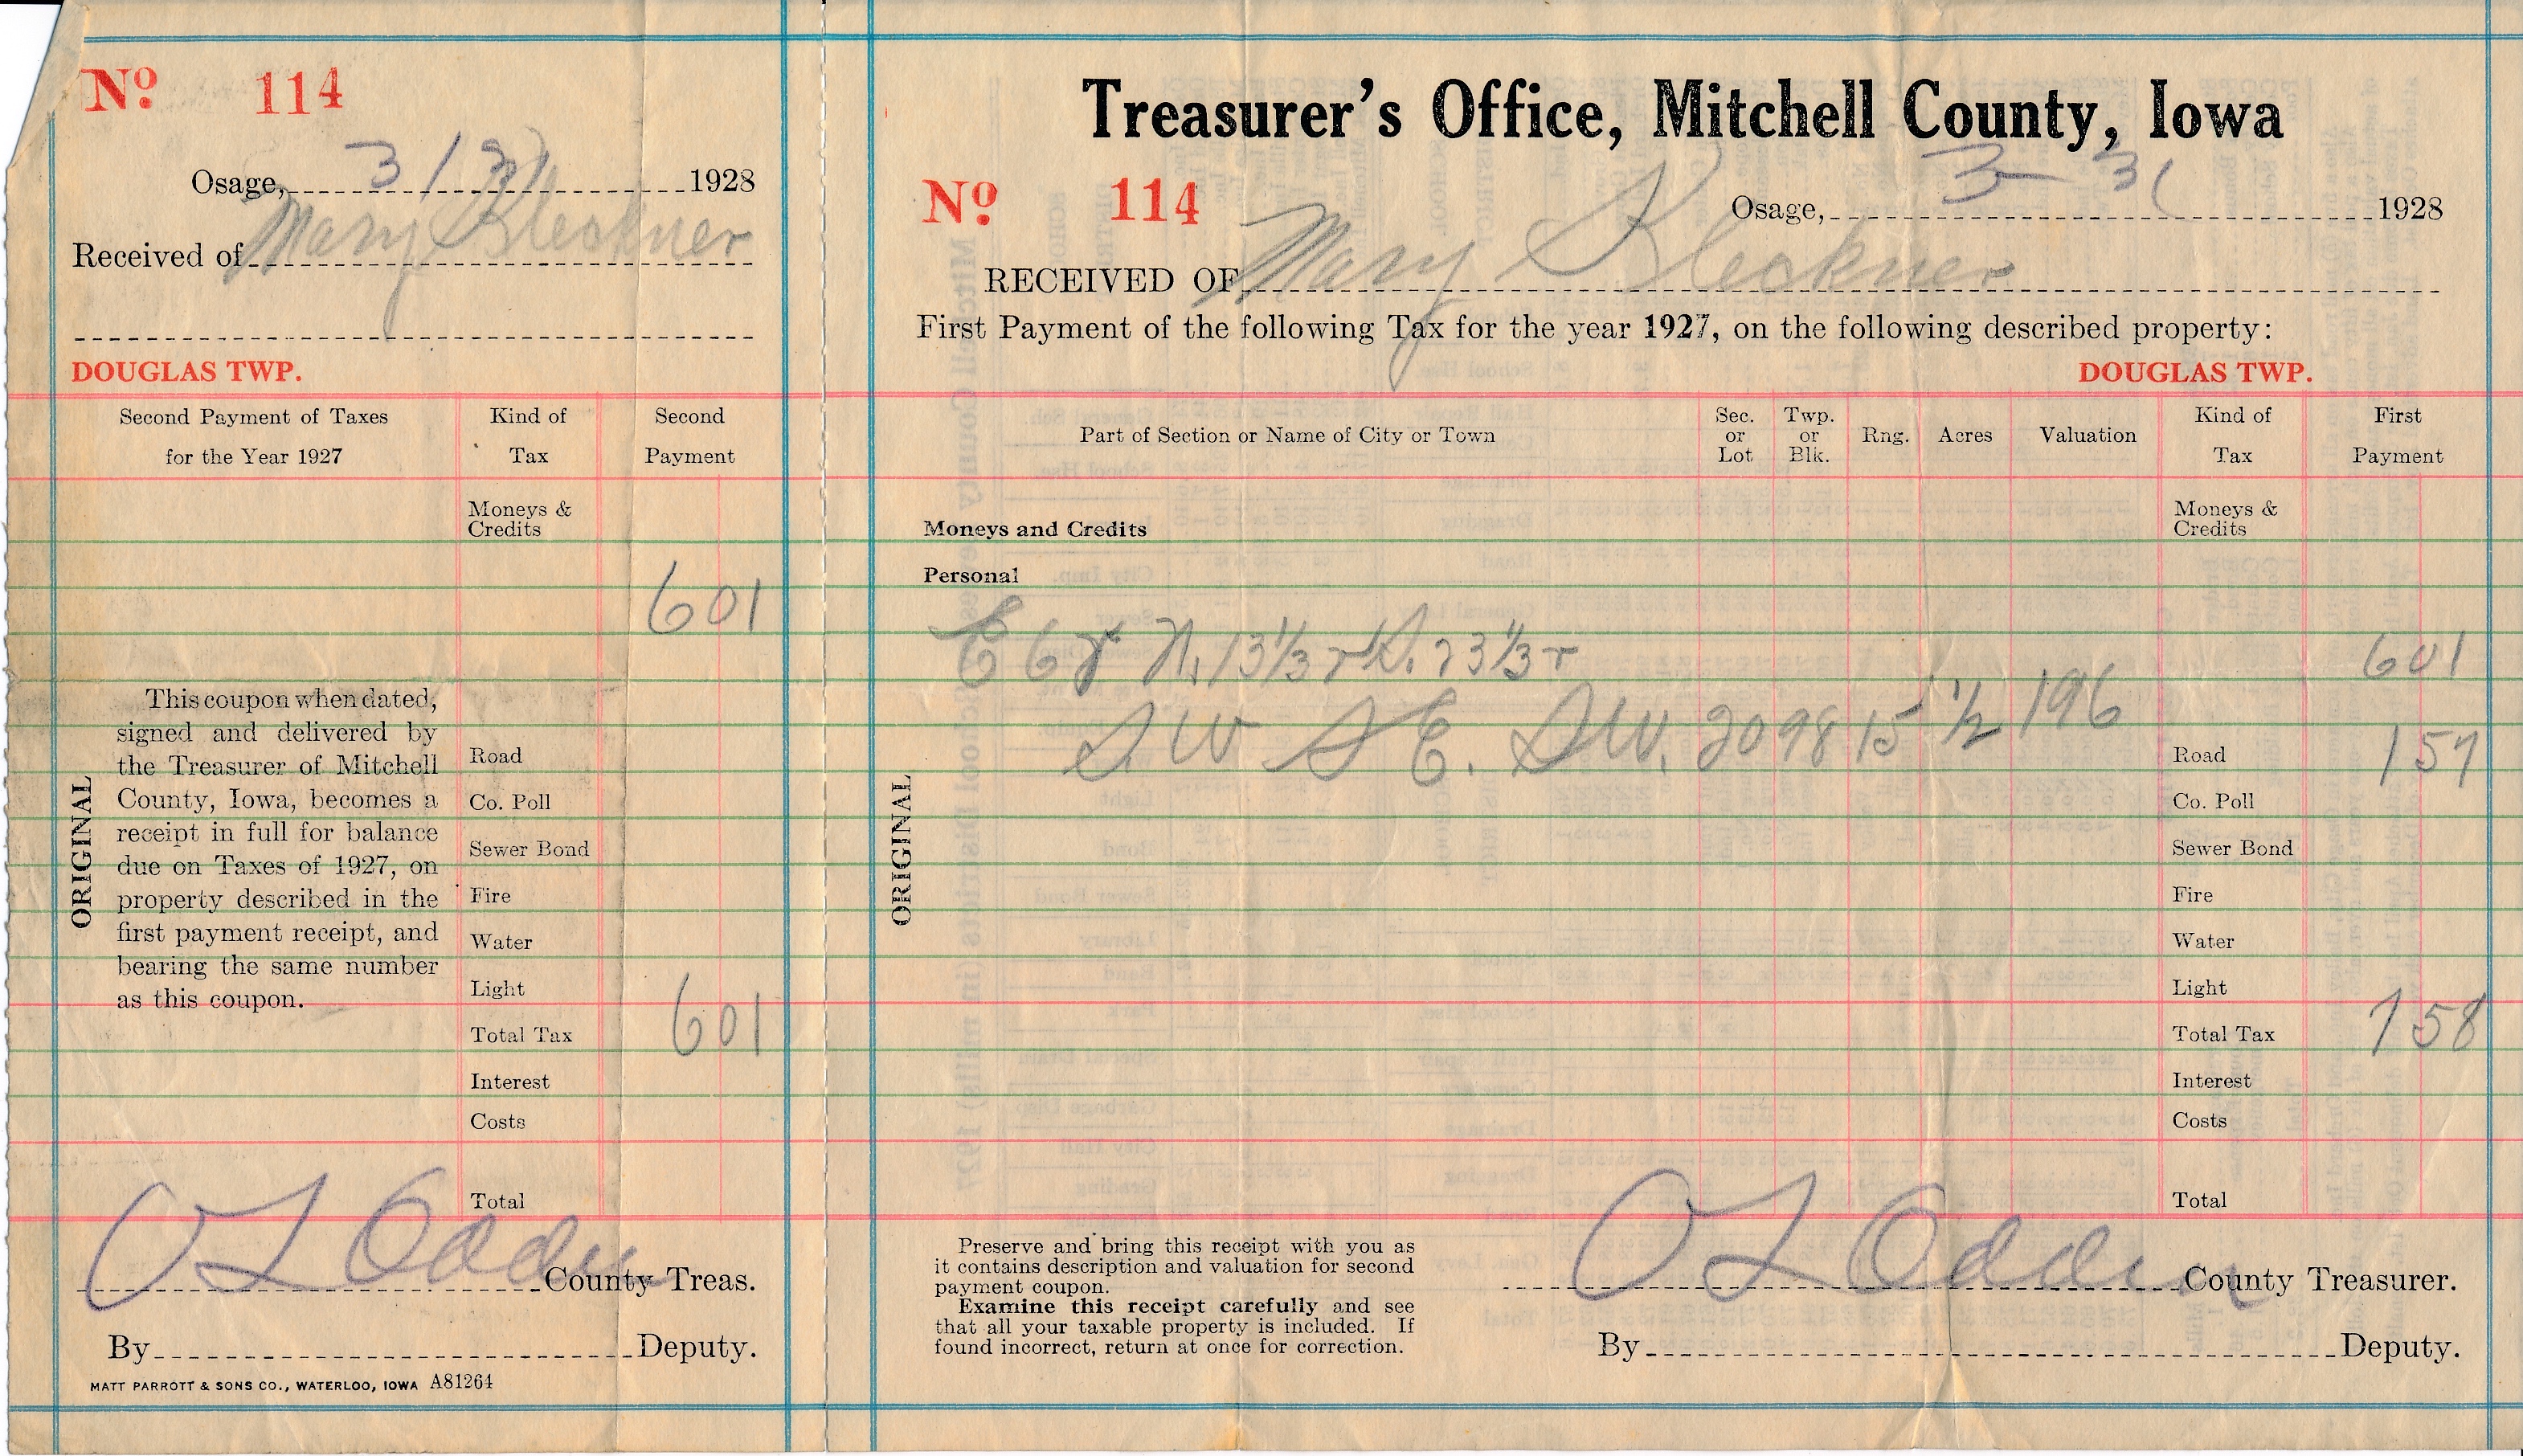 No. 114
Osage, 3/31 1928
Received of Mary Kleckner
DOUGLAS TWP.
Second Payment of Taxes for the Year 1927
Kind of Tax
Second Payment
Moneys & Credits
601
This coupon when dated,
signed and delivered by
the Treasurer of Mitchell
County, Iowa, becomes a
receipt in full for balance
due on Taxes of 1927, on
property described in the
first payment receipt, and
bearing the same number
as this coupon.
ORIGINAL
Road
Co. Poll
Sewer Bond
Fire
Water
Light
Total Tax 601
Interest
Costs
Total
O L Odden County Treas.
By Deputy.
MATT PARROTT & SONS CO., WATERLOO, IOWA A81264
Treasurer's Office, Mitchell County, Iowa
No. 114
Osage, 3-31 1928
RECEIVED OF Mary Kleckner
First Payment of the following Tax for the year 1927, on the following described property:
DOUGLAS TWP.
Part of Section or Name of City or Town
Sec. or Lot
Twp. or Blk.
Rng.
Acres
Valuation
Kind of Tax
First Payment
Moneys & Credits
Moneys and Credits
Personal
E 6 r N. 13 1/3 r S. 23 1/3 r 601
SW SE. SW. 20 98 15 1/2 196
Road 157
ORIGINAL
Co. Poll
Sewer Bond
Fire
Water
Light
Total Tax 758
Interest
Costs
Total
Preserve and bring this receipt with you as
it contains description and valuation for second
payment coupon.
Examine this receipt carefully and see
that all your taxable property is included. If
found incorrect, return at once for correction.
O L Odden County Treasurer.
By Deputy.